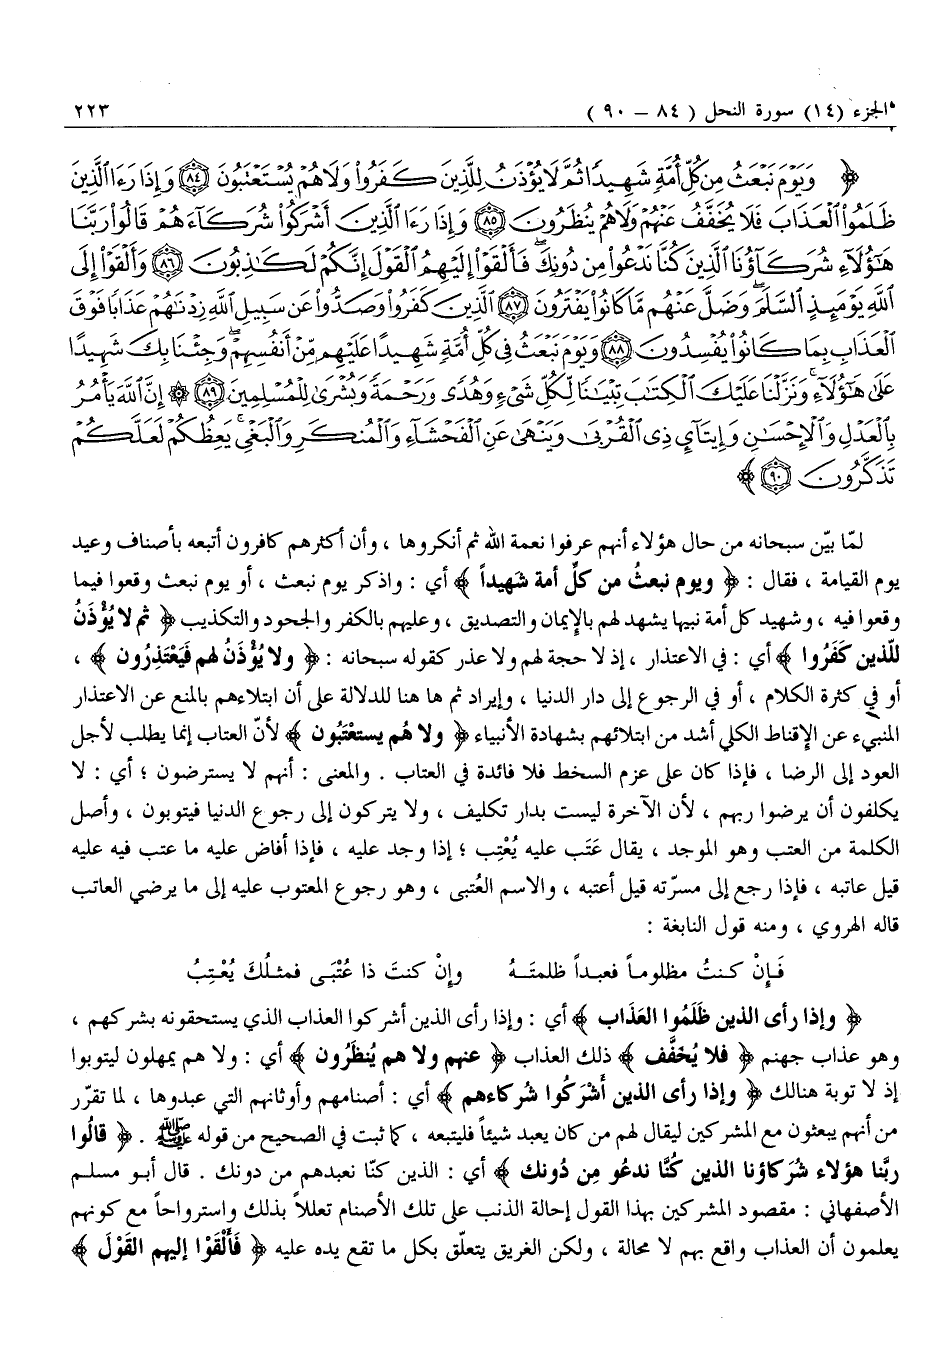 الجزء (١٤) سورة النحل ( ٨٤ – ٩٠ ) ٢٢٣
﴿ وَيَوْمَ نَبْعَثُ مِن كُلِّ أُمَّةٍ شَهِيدًا ثُمَّ لَا يُؤْذَنُ لِلَّذِينَ كَفَرُوا۟ وَلَا هُمْ يُسْتَعْتَبُونَ ۝٨٤ وَإِذَا رَءَا ٱلَّذِينَ
ظَلَمُوا۟ ٱلْعَذَابَ فَلَا يُخَفَّفُ عَنْهُمْ وَلَا هُمْ يُنظَرُونَ ۝٨٥ وَإِذَا رَءَا ٱلَّذِينَ أَشْرَكُوا۟ شُرَكَآءَهُمْ قَالُوا۟ رَبَّنَا
هَٰٓؤُلَآءِ شُرَكَآؤُنَا ٱلَّذِينَ كُنَّا نَدْعُوا۟ مِن دُونِكَ ۖ فَأَلْقَوْا۟ إِلَيْهِمُ ٱلْقَوْلَ إِنَّكُمْ لَكَٰذِبُونَ ۝٨٦ وَأَلْقَوْا۟ إِلَى
ٱللَّهِ يَوْمَئِذٍ ٱلسَّلَمَ ۖ وَضَلَّ عَنْهُم مَّا كَانُوا۟ يَفْتَرُونَ ۝٨٧ ٱلَّذِينَ كَفَرُوا۟ وَصَدُّوا۟ عَن سَبِيلِ ٱللَّهِ زِدْنَٰهُمْ عَذَابًا فَوْقَ
ٱلْعَذَابِ بِمَا كَانُوا۟ يُفْسِدُونَ ۝٨٨ وَيَوْمَ نَبْعَثُ فِى كُلِّ أُمَّةٍ شَهِيدًا عَلَيْهِم مِّنْ أَنفُسِهِمْ ۖ وَجِئْنَا بِكَ شَهِيدًا
عَلَىٰ هَٰٓؤُلَآءِ ۚ وَنَزَّلْنَا عَلَيْكَ ٱلْكِتَٰبَ تِبْيَٰنًا لِّكُلِّ شَىْءٍ وَهُدًى وَرَحْمَةً وَبُشْرَىٰ لِلْمُسْلِمِينَ ۝٨٩ ۞ إِنَّ ٱللَّهَ يَأْمُرُ
بِٱلْعَدْلِ وَٱلْإِحْسَٰنِ وَإِيتَآئِ ذِى ٱلْقُرْبَىٰ وَيَنْهَىٰ عَنِ ٱلْفَحْشَآءِ وَٱلْمُنكَرِ وَٱلْبَغْىِ ۚ يَعِظُكُمْ لَعَلَّكُمْ
تَذَكَّرُونَ ۝٩٠ ﴾
لمّا بيّن سبحانه من حال هؤلاء أنهم عرفوا نعمة الله ثم أنكروها ، وأن أكثرهم كافرون أتبعه بأصناف وعيد
يوم القيامة ، فقال : ﴿ ويوم نبعثُ من كلِّ أمة شهيداً ﴾ أي : واذكر يوم نبعث ، أو يوم نبعث وقعوا فيما
وقعوا فيه ، وشهيد كل أمة نبيها يشهد لهم بالإيمان والتصديق ، وعليهم بالكفر والجحود والتكذيب ﴿ ثم لا يُؤْذَنُ
للّذين كَفَرُوا ﴾ أي : في الاعتذار ، إذ لا حجة لهم ولا عذر كقوله سبحانه : ﴿ ولا يُؤذَنُ لهم فَيَعْتَذِرُون ﴾ ،
أو في كثرة الكلام ، أو في الرجوع إلى دار الدنيا ، وإيراد ثم ها هنا للدلالة على أن ابتلاءهم بالمنع عن الاعتذار
المنبىء عن الإقناط الكلي أشد من ابتلائهم بشهادة الأنبياء ﴿ ولا هُم يستعْتَبُون ﴾ لأنّ العتاب إنما يطلب لأجل
العود إلى الرضا ، فإذا كان على عزم السخط فلا فائدة في العتاب . والمعنى : أنهم لا يسترضون ؛ أي : لا
يكلفون أن يرضوا ربهم ، لأن الآخرة ليست بدار تكليف ، ولا يتركون إلى رجوع الدنيا فيتوبون ، وأصل
الكلمة من العتب وهو الموجد ، يقال عَتَب عليه يُعْتِب ؛ إذا وجد عليه ، فإذا أفاض عليه ما عتب فيه عليه
قيل عاتبه ، فإذا رجع إلى مسرّته قيل أعتبه ، والاسم العُتبى ، وهو رجوع المعتوب عليه إلى ما يرضي العاتب
قاله الهروي ، ومنه قول النابغة :
فَإِنْ كنتُ مظلوماً فعبداً ظلمتَهُ وإنْ كنتَ ذا عُتْبَى فمثلُكَ يُعْتِبُ
﴿ وإذا رأى الذين ظَلَمُوا العَذَاب ﴾ أي : وإذا رأى الذين أشركوا العذاب الذي يستحقونه بشركهم ،
وهو عذاب جهنم ﴿ فلا يُخفَّف ﴾ ذلك العذاب ﴿ عنهم ولا هم يُنظَرُون ﴾ أي : ولا هم يمهلون ليتوبوا
إذ لا توبة هنالك ﴿ وإذا رأى الذين أَشْرَكُوا شُركاءهم ﴾ أي : أصنامهم وأوثانهم التي عبدوها ، لما تقرّر
من أنهم يبعثون مع المشركين ليقال لهم من كان يعبد شيئاً فليتبعه ، كما ثبت في الصحيح من قوله ﷺ . ﴿ قالُوا
ربَّنا هؤلاء شُركاؤنا الذين كُنَّا ندعُو مِن دُونك ﴾ أي : الذين كنّا نعبدهم من دونك . قال أبو مسلم
الأصفهاني : مقصود المشركين بهذا القول إحالة الذنب على تلك الأصنام تعللاً بذلك واسترواحاً مع كونهم
يعلمون أن العذاب واقع بهم لا محالة ، ولكن الغريق يتعلّق بكل ما تقع يده عليه ﴿ فَأَلْقَوْا إليهم القَوْلَ ﴾